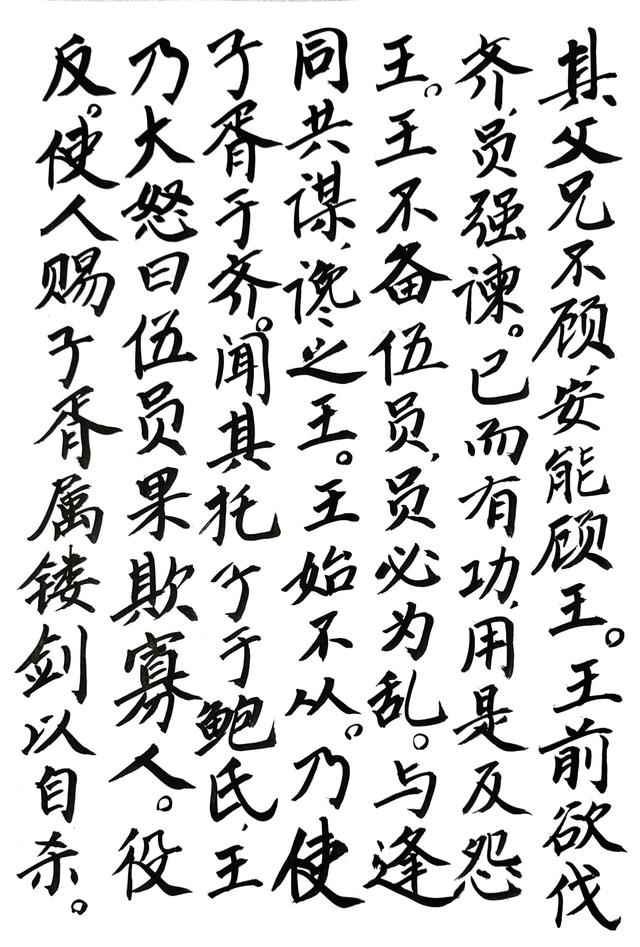 其父兄不顾,安能顾王。王前欲伐
齐,员强谏。已而有功,用是反怨
王。王不备伍员,员必为乱。与逢
同共谋,谗之王。王始不从。乃使
子胥于齐。闻其托子于鲍氏,王
乃大怒曰伍员果欺寡人。役
反。使人赐子胥属镂剑以自杀。